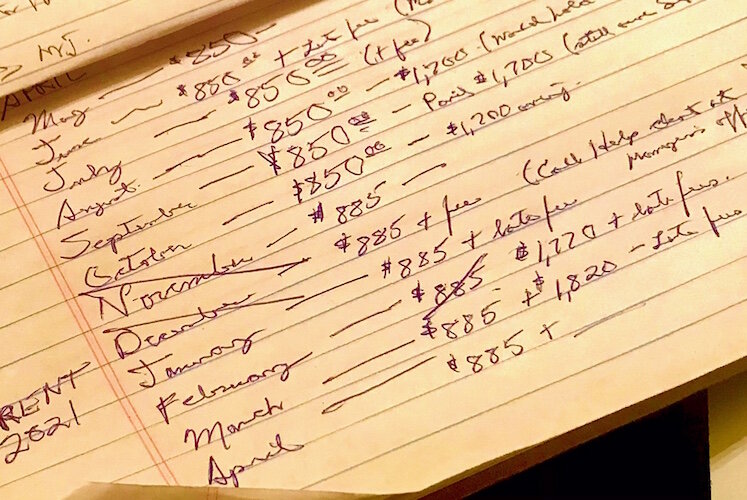 > MJ.
APRIL — $850 —
May — $850.00 + Late fee
June — $850.00 (+ fee)
July — $850.00 — $1,200 (would hold
August — $850.00 — Paid $1,700 (still owe
September — $850.00 — $1,200 owing.
October — $885 —
November — $885 + fee (Call Help rent at
Managers off
December — $885 + late fee
January — $885 $1,770 + late fees.
February — $885 + $1,820 - Late fee
March — $885 + ___
April
RENT
2021